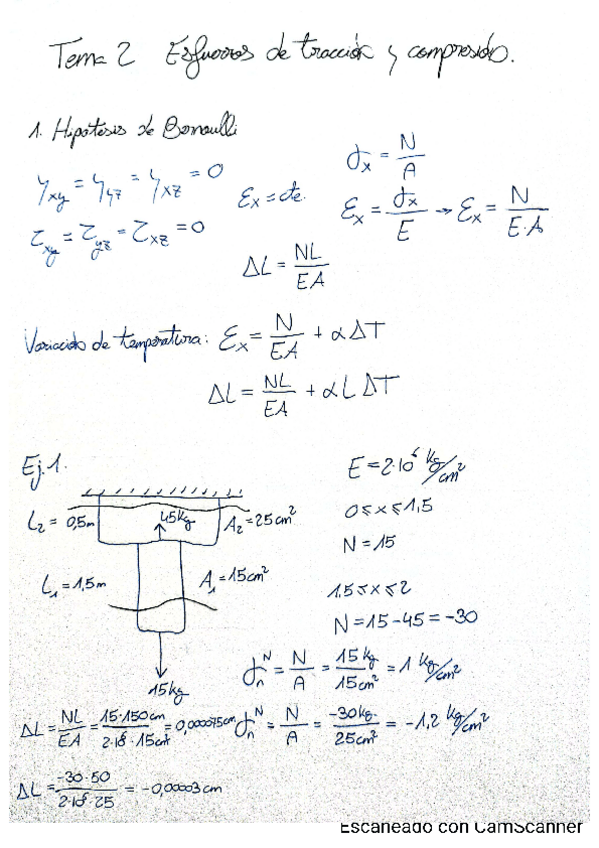 Tema 2 Esfuerzos de tracción y compresión.
1. Hipótesis de Bernoulli
γxy = γyz = γxz = 0
εx = cte.
σx = N/A
τxy = τyz = τxz = 0
εx = σx/E → εx = N/E·A
ΔL = NL/EA
Variación de temperatura: εx = N/EA + αΔT
ΔL = NL/EA + αLΔT
Ej.1.
E = 2·10⁶ kg/cm²
L₂ = 0,5m
45kg
A₂ = 25cm²
0 ≤ x ≤ 1,5
N = 15
L₁ = 1,5m
A₁ = 15cm²
1,5 ≤ x ≤ 2
N = 15-45 = -30
15kg
σₙᴺ = N/A = 15kg/15cm² = 1 kg/cm²
ΔL = NL/EA = 15·150cm/2·10⁶·15cm² = 0,000075cm
σₙᴺ = N/A = -30kg/25cm² = -1,2 kg/cm²
ΔL = -30·50/2·10⁶·25 = -0,00003cm
Escaneado con CamScanner